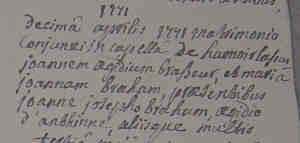 1771
decimâ aprilis 1771 matrimonio
conjunxi in capella de
joannem ægidium brasseur, et maria
joannam braham, præsentibus
joanne josepho braham, ægidio
d'anthinne, aliisque multis